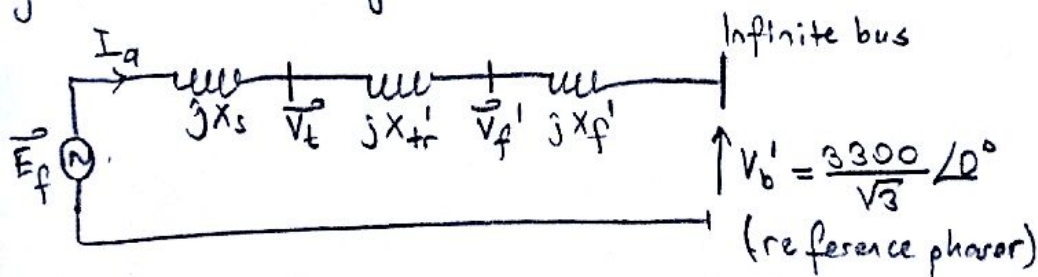 Infinite bus
I_a
jX_s V⃗_t jX_tr' V⃗_f' jX_f'
E⃗_f
V_b' = 3300/√3 ∠0°
(reference phasor)